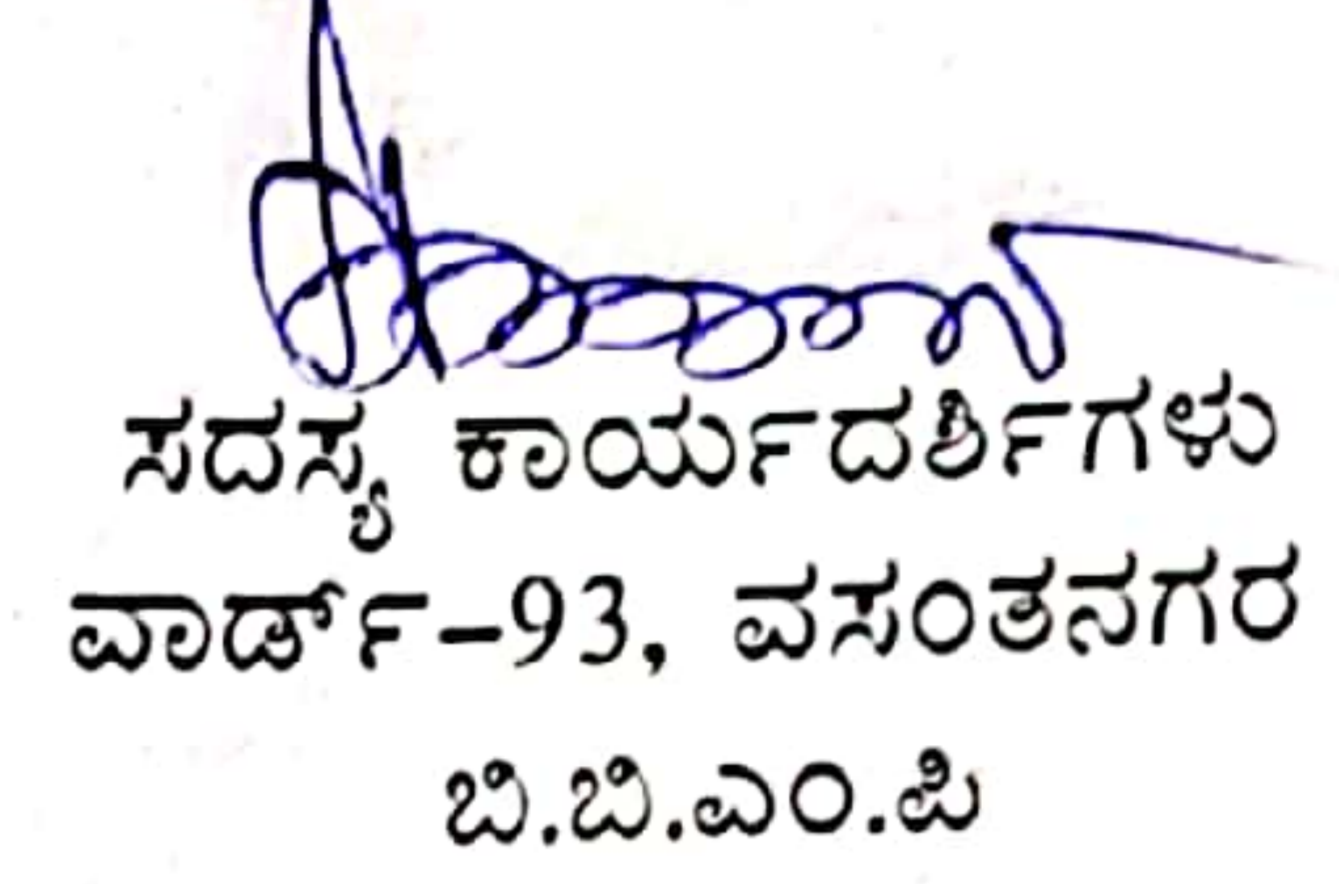 ಸದಸ್ಯ ಕಾರ್ಯದರ್ಶಿಗಳು
ವಾರ್ಡ್-93, ವಸಂತನಗರ
ಬಿ.ಬಿ.ಎಂ.ಪಿ